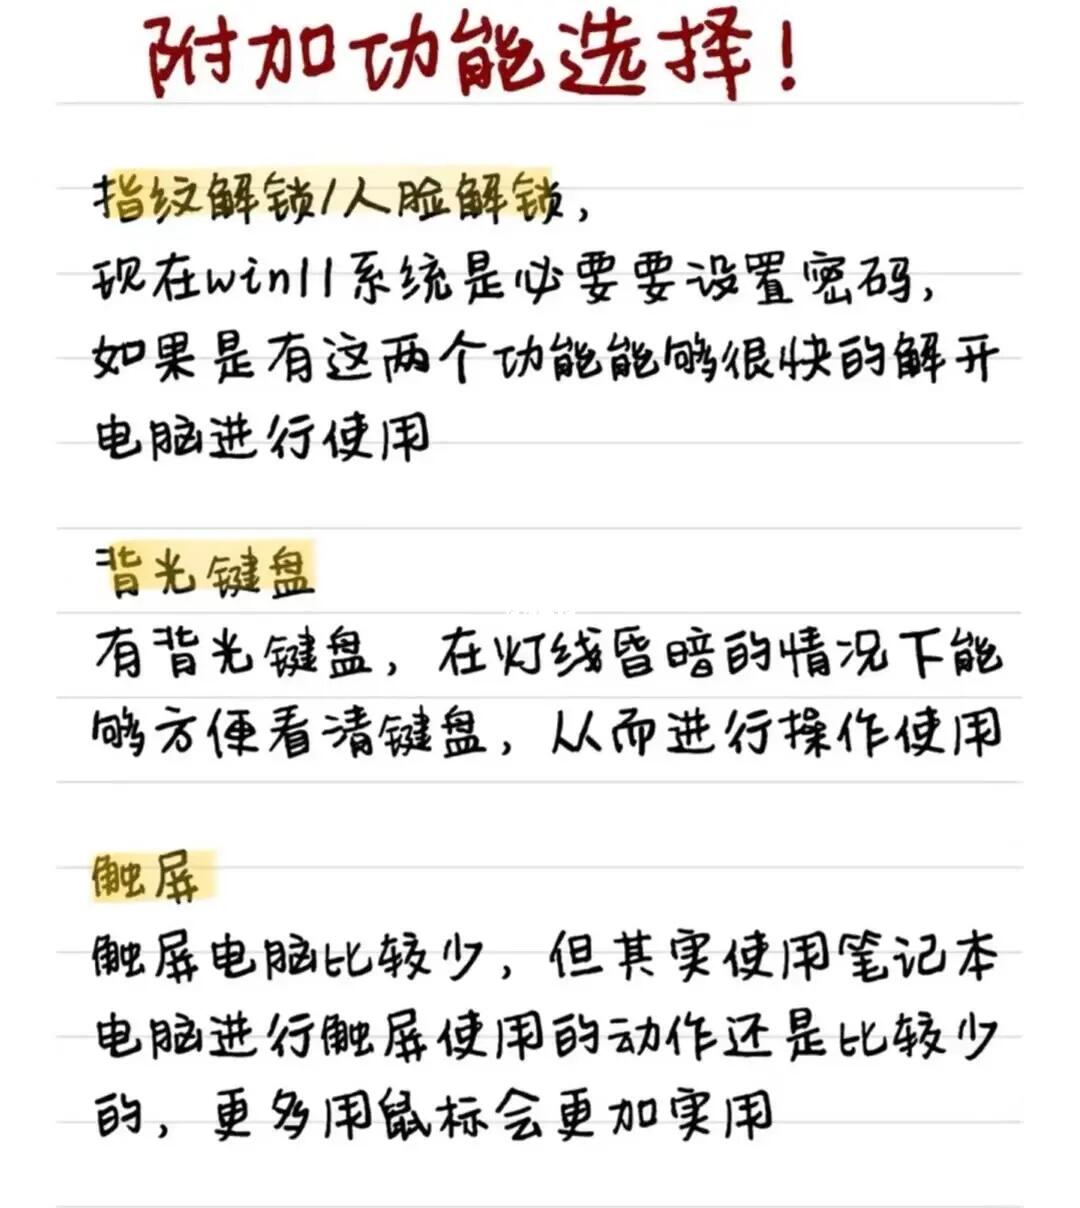 附加功能选择!
指纹解锁/人脸解锁,
现在win11系统是必要要设置密码,
如果是有这两个功能能够很快的解开
电脑进行使用
背光键盘
有背光键盘,在灯线昏暗的情况下能
够方便看清键盘,从而进行操作使用
触屏
触屏电脑比较少,但其实使用笔记本
电脑进行触屏使用的动作还是比较少
的,更多用鼠标会更加实用